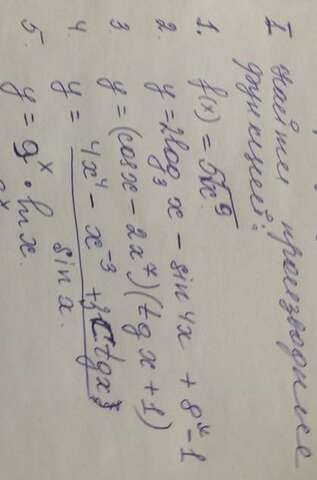 I Найти производные
функций:
1. f(x) = 5√x⁹
2. y = 2log₃x − sin4x + 8ˣ − 1
3. y = (cosx − 2x⁷)(tgx + 1)
4. y = (4x⁴ − x⁻³ + 3ctgx) / sinx.
5. y = 9ˣ · lnx.